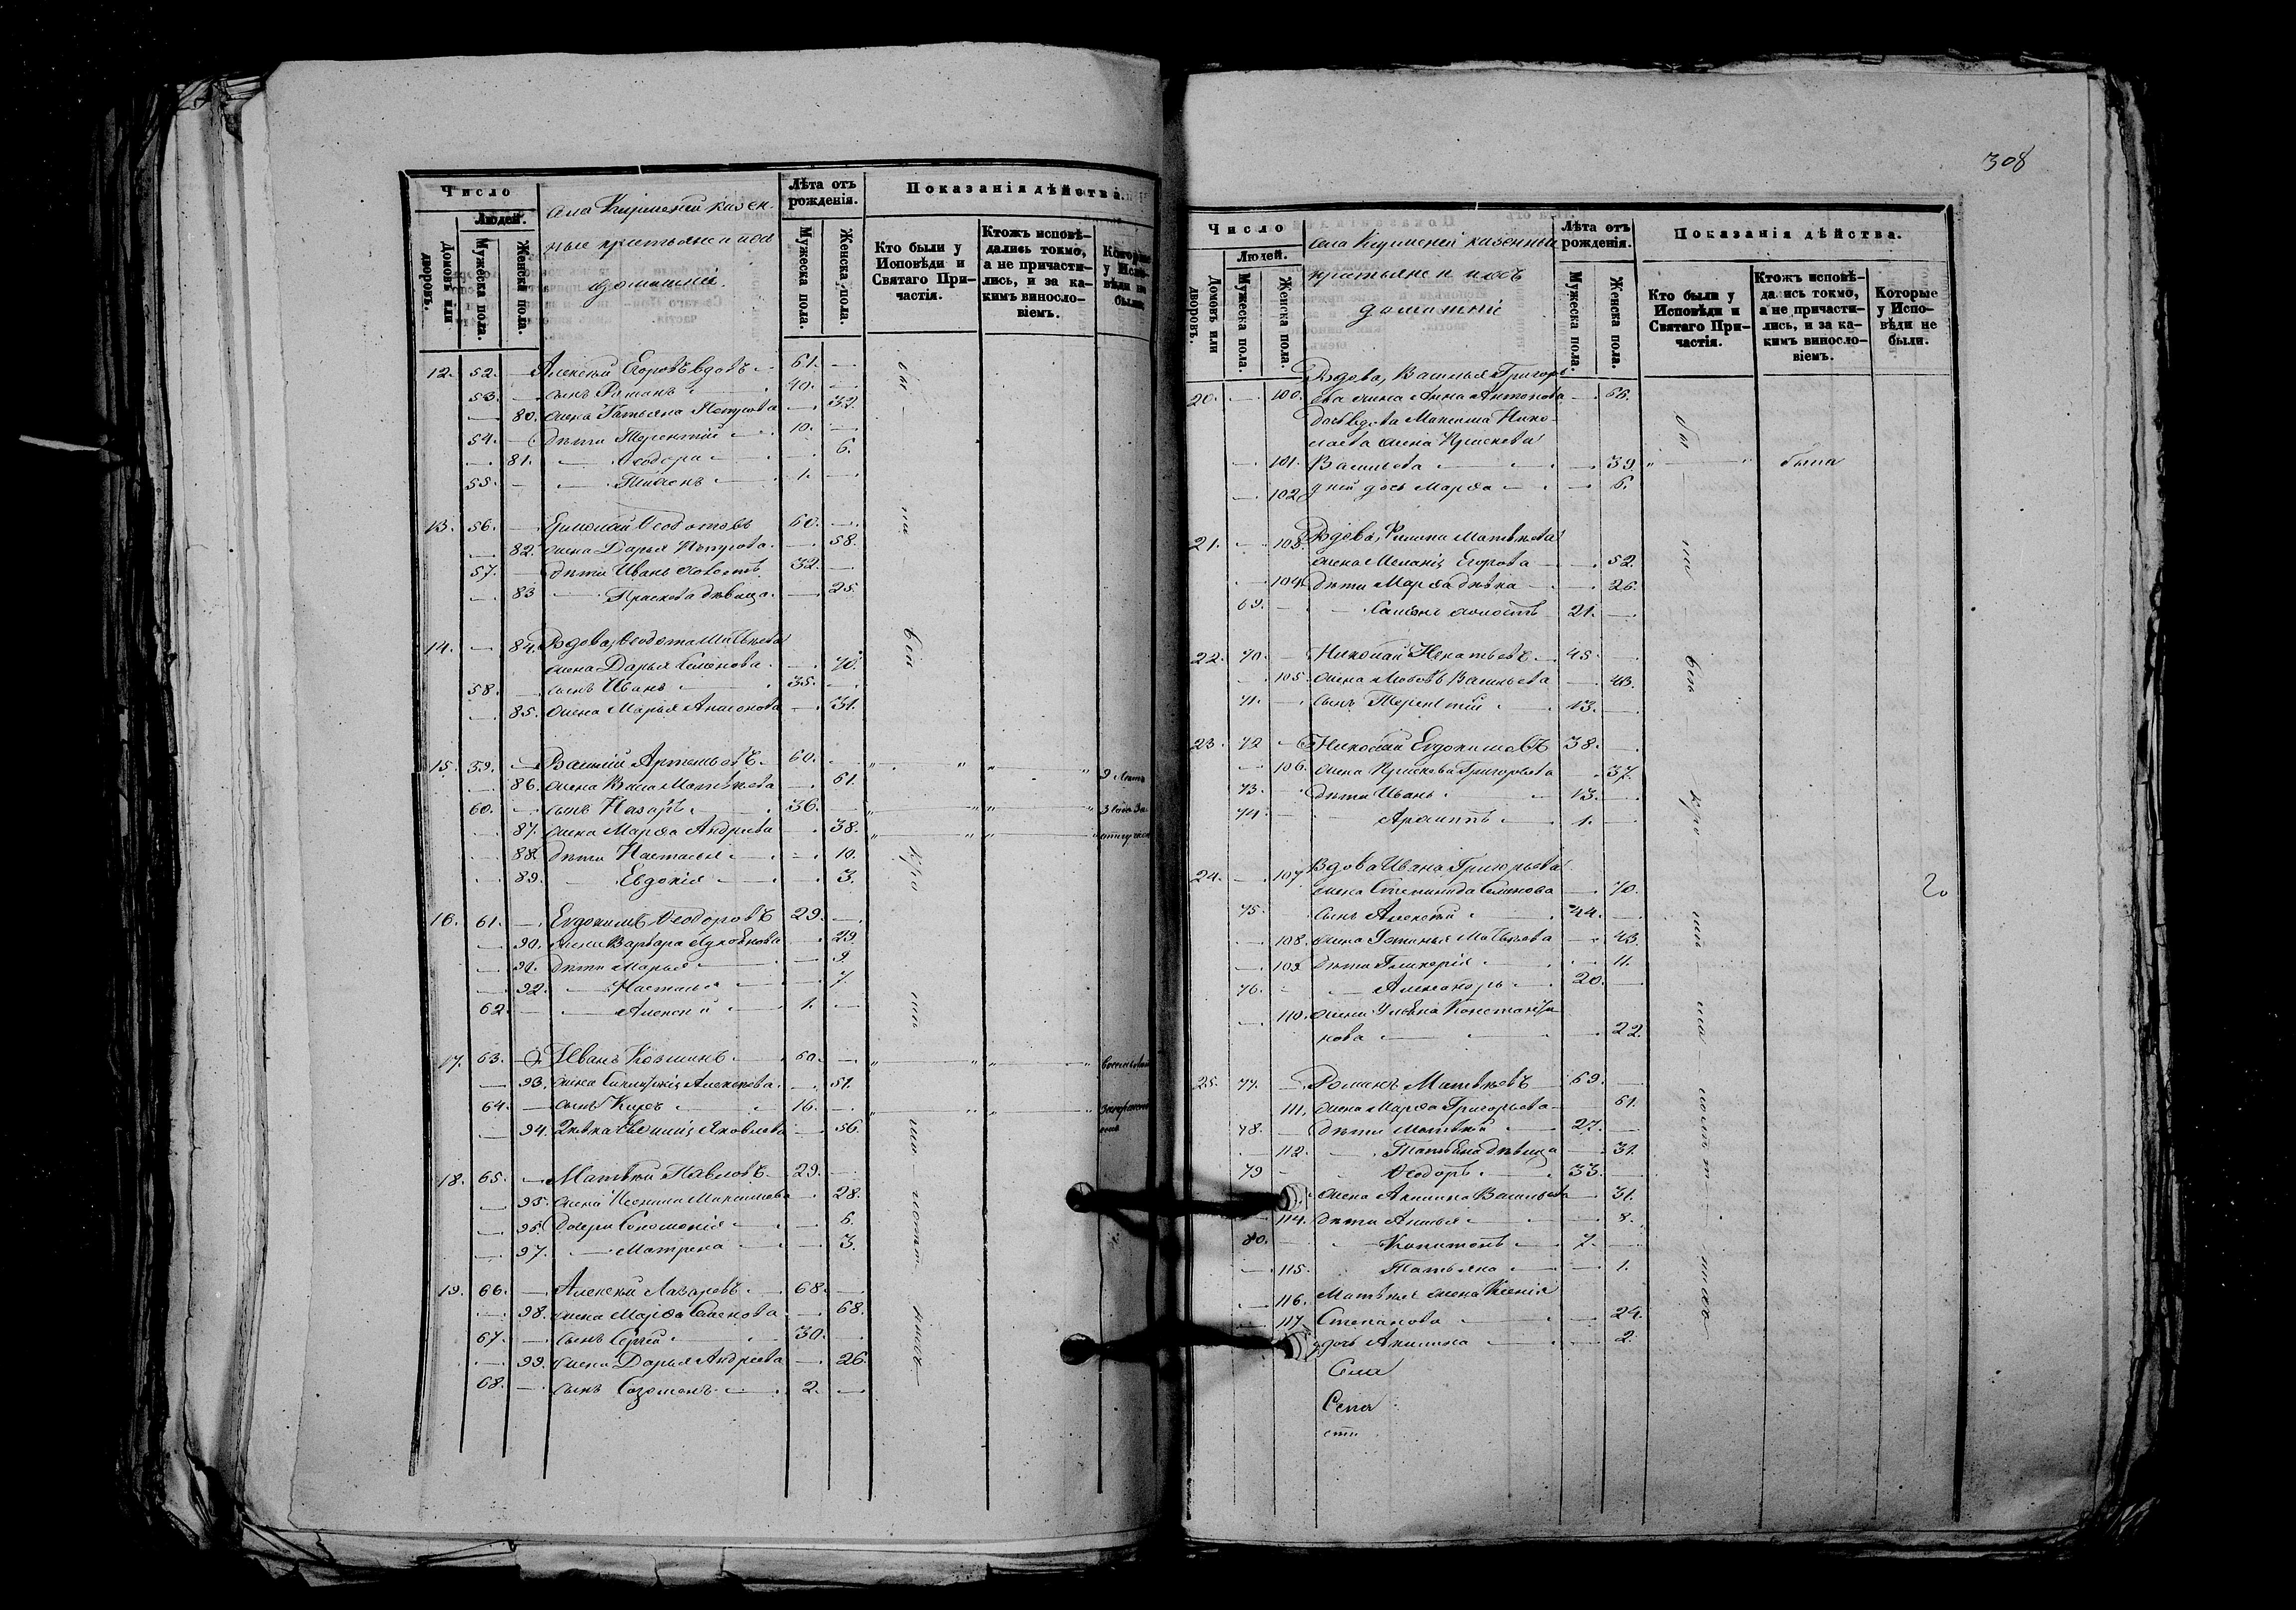 Число
Людей.
Домовъ или дворовъ.
Мужеска пола.
Женска пола.
села казен-
ные крестьяне и ихъ
домашніе.
Лѣта отъ рожденія.
Мужеска пола.
Женска пола.
Показанія дѣйства.
Кто были у Исповѣди и Святаго Причастія.
Ктожъ исповѣдались токмо, а не причастились, и за какимъ винословіемъ.
Которые у Исповѣди не были.
12. 52. — Алексѣй Егоровъ вдовъ 61. —
53. — сынъ Романъ 40. —
— 80. жена Татьяна Петрова — 32.
54. — дѣти Терентій 10. —
— 81. — Ѳеодора — 6.
55. — — 1. —
13. 56. — Ермолай Ѳедотовъ 60. —
— 82. жена Дарья Петрова — 58.
57. — дѣти Иванъ холостъ 32. —
— 83 — Праскева дѣвица — 25.
14. — 84. Вдова, Ѳедота Матвѣева
жена Дарья Семенова — 70.
58. — сынъ Иванъ 35. —
— 85. жена Марья — 31.
15. 59. — Василій Артемьевъ 60. —
— 86. жена Васса Матвѣева — 61.
60. — сынъ Назаръ 36. —
— 87. жена Марѳа Андреева — 38.
— 88. дѣти Настасья — 10.
— 89. — Евдокія — 3.
16. 61. — Евдокимъ Ѳеодоровъ 29. —
— 90. жена Варвара — 29.
— 91. дѣти Марья — 9.
— 92. — Настасья — 7.
62. — — Алексѣй 1. —
17. 63. — Иванъ Козминъ 60. —
— 93. жена Алексѣева — 51.
64. — сынъ Киръ 16. —
— 94. дѣвка Яковлева — 56.
18. 65. — Матвѣй Павловъ 29. —
— 95. жена Ксенія Максимова — 28.
— 96. дочери Соломонія — 6.
— 97. — Матрена — 3.
19. 66. — Алексѣй Лазаревъ 68. —
— 98. жена Марѳа Семенова — 68.
67. — сынъ Сергій 30. —
— 99. жена Дарья Андреева — 26.
68. — сынъ Созонъ 2. —
308
Число
Людей.
Домовъ или дворовъ.
Мужеска пола.
Женска пола.
села казенные
крестьяне и ихъ
домашніе
Лѣта отъ рожденія.
Мужеска пола.
Женска пола.
Показанія дѣйства.
Кто были у Исповѣди и Святаго Причастія.
Ктожъ исповѣдались токмо, а не причастились, и за какимъ винословіемъ.
Которые у Исповѣди не были.
Вдова, Василья Григорь-
20. — 100. ева жена Анна Антонова —
дочь вдова Максима Нико-
лаева жена Праскева
— 101. Васильева — 39. была
— 102. у ней дочь Марѳа — 6.
21. — 103. Вдова, Матвѣева
жена Меланія Егорова — 52.
— 104. дѣти Марѳа дѣвка — 26.
69. — холостъ 21. —
22. 70. — Николай Игнатьевъ 45. —
— 105. жена Любовь Васильева — 43.
71. — сынъ Терентій 13. —
23. 72 — Николай Евдокимовъ 38. —
— 106. жена Праскева Григорьева — 37.
73. дѣти Иванъ 13. —
74. — Архиппъ 1. —
Вдова Ивана Григорьева
24. — 107 жена Степанида Семенова — 70.
75. сынъ Алексѣй 44. —
— 108. жена Устинья Матвѣева — 43.
— 109. дѣти Гликерія — 11.
76. — Александръ 20. —
— 110. жена Ульяна Константи-
нова — 22.
20
25. 77. — Романъ Матвѣевъ 69. —
111. жена Марѳа Григорьева — 61.
78. — дѣти Матвѣй 27. —
— 112. — Татьяна дѣвица — 31.
79 — Ѳеодоръ 33. —
жена Акилина Васильева — 31.
— 114. дѣти — 8.
80. — Капитонъ 7. —
— 115. Татьяна — 1.
— 116. Матвѣя жена Ксенія
— 117. Степанова — 24.
дочь Акилина — 2.
Села